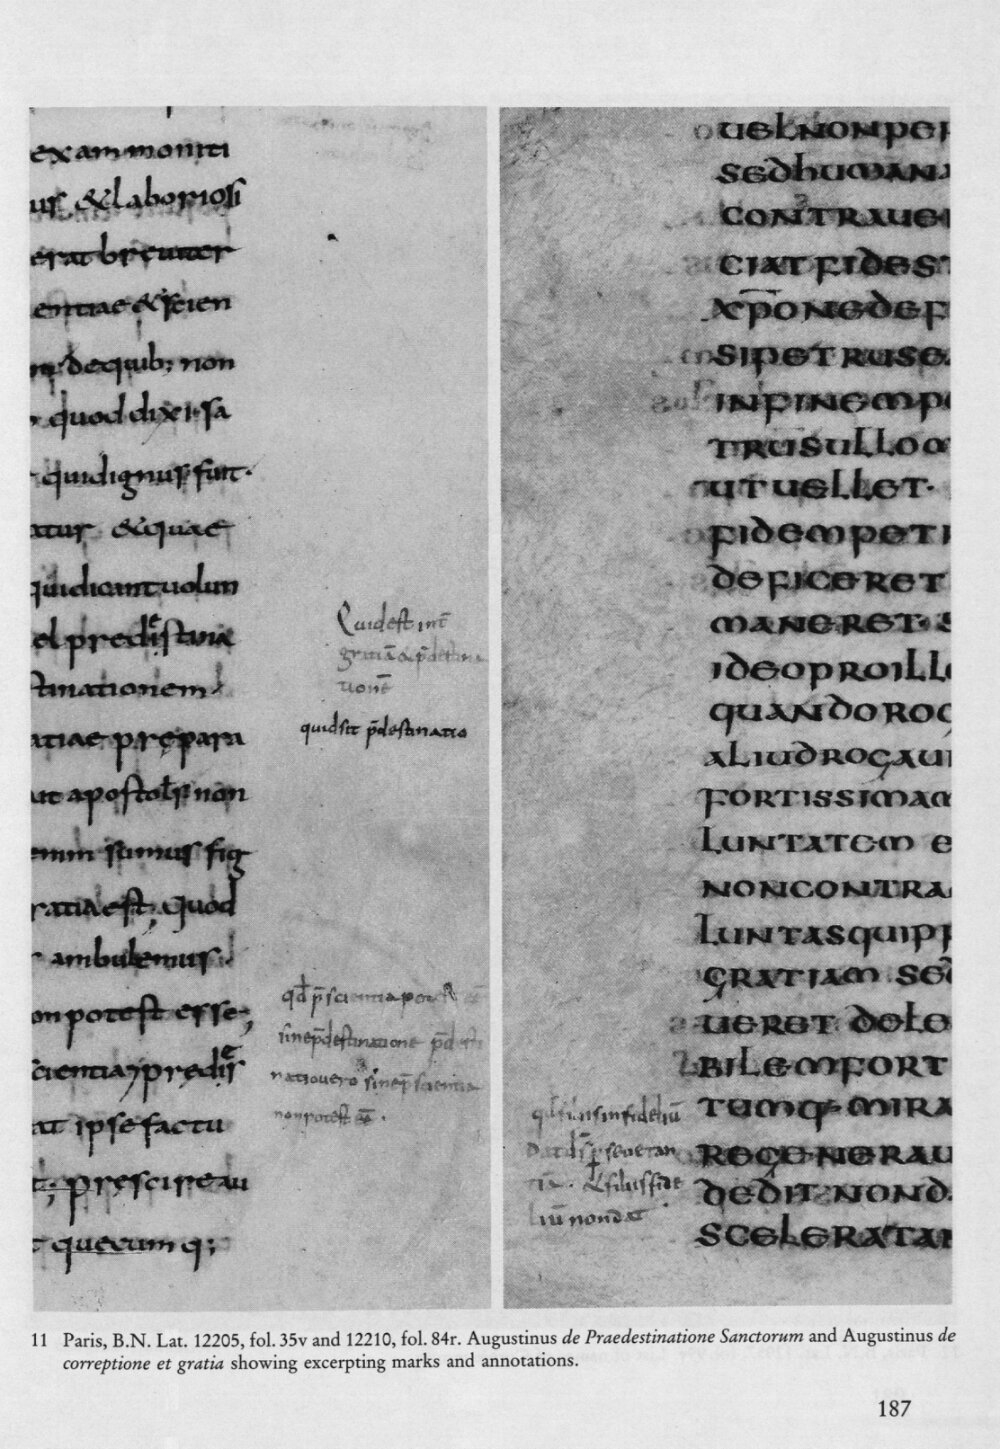 exammoniti
us &laboriosi
erat breuiter
entiae &scien
dequib; non
quod dixi sa
quidignus fuit·
atus &quae
quidicant uolun
el predęstina
stinationem
atiae prępara
apostolus non
enim sumus fig
ratia est; Quod
ambulemus
on potest esse;
scientia predęs
at ipse factu
t; pręscireau
quecumq;
Quidest int̄
gratiā & p̄destina
tionē
quidsit p̄destinatio
qd̄ p̄scientia pot
sinep̄destinatione p̄desti
natiouero sinep̄scientia
nonpotest eē·
UELNONPER
SEDHUMANA
CONTRAUE
CIATFIDEST
XP̄ONEDEF
SIPETRUSE
INFIRMEMPO
TRUSULLOM
UTUELLET·
FIDEMPETI
DEFICERET
MANERET·S
IDEOPROILLO
QUANDOROG
ALIUDROGAUI
FORTISSIMAM
LUNTATEM E
NONCONTRA
LUNTASQUIPP
GRATIAM SED
UERET DELE
BILEMFORT
TEMQ· MIRA
REGENERAU
DEDIT NOND
SCELERATAM
qd̄ filiis infidelium
dat ds̄ perseueran
tiā· & filiis fide
liū non dat·
11 Paris, B.N. Lat. 12205, fol. 35v and 12210, fol. 84r. Augustinus de Praedestinatione Sanctorum and Augustinus de
correptione et gratia showing excerpting marks and annotations.
187